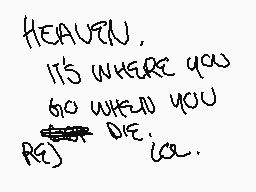 HEAVEN.
IT'S WHERE YOU
GO WHEN YOU
DIE.
RE) LOL.